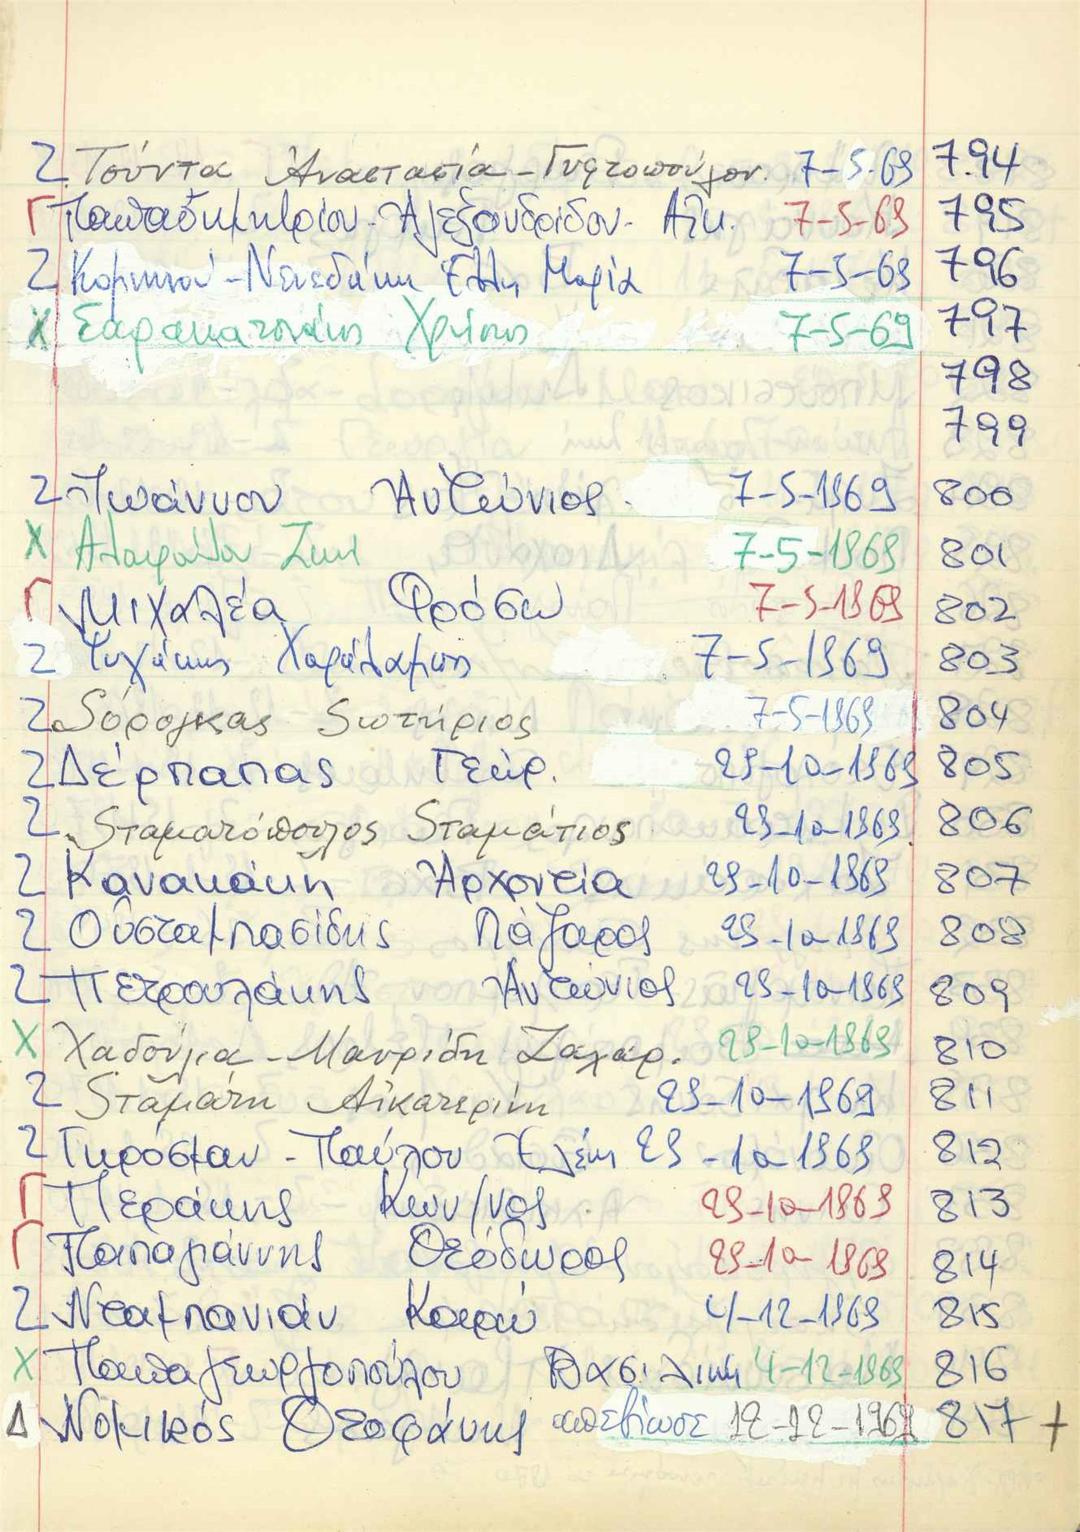 Ζ Τσύντα Ἀναστασία - Γυφτοπούλου. 7-5-69 794
Γ Παπαδημητρίου - Ἀλεξανδρίδου - Αἰκ. 7-5-69 795
Ζ Κομνηνοῦ - Νενεδάκη Ἕλλη Μαρία 7-5-69 796
Χ Σαρακατσιάνης Χρῆστος 7-5-69 797
798
799
Ζ Ἰωάννου Ἀντώνιος 7-5-1969 800
Χ 7-5-1969 801
Γ Μιχαλέα Φρόσω 7-5-1969 802
Ζ Ψυχάκης Χαράλαμπος 7-5-1969 803
Ζ Σόρογκας Σωτήριος 7-5-1969 804
Ζ Δέρπαπας Γεώρ. 29-10-1969 805
Ζ Σταματόπουλος Σταμάτιος 29-10-1969 806
Ζ Κανακάκη Ἀρχοντεία 29-10-1969 807
Ζ Οὐσταμπασίδης Λάζαρος 29-10-1969 808
Ζ Πετρουλάκης Ἀντώνιος 29-10-1969 809
Χ Χαδούλια - Μαυρίδη Ζαχαρ. 29-10-1969 810
Ζ Σταμάτη Αἰκατερίνη 29-10-1969 811
Ζ Γκρόσμαν - Παύλου Ἑλένη 29-10-1969 812
Γ Περάκης Κων/νος 29-10-1969 813
Γ Παπαγιάννης Θεόδωρος 29-10-1969 814
Ζ Νεαμπανιάν 4-12-1969 815
Χ Παπαγεωργοπούλου Βασιλική 4-12-1969 816
Δ Νομικός Θεοφάνης ἀπεβίωσε 12-12-1969 817 +